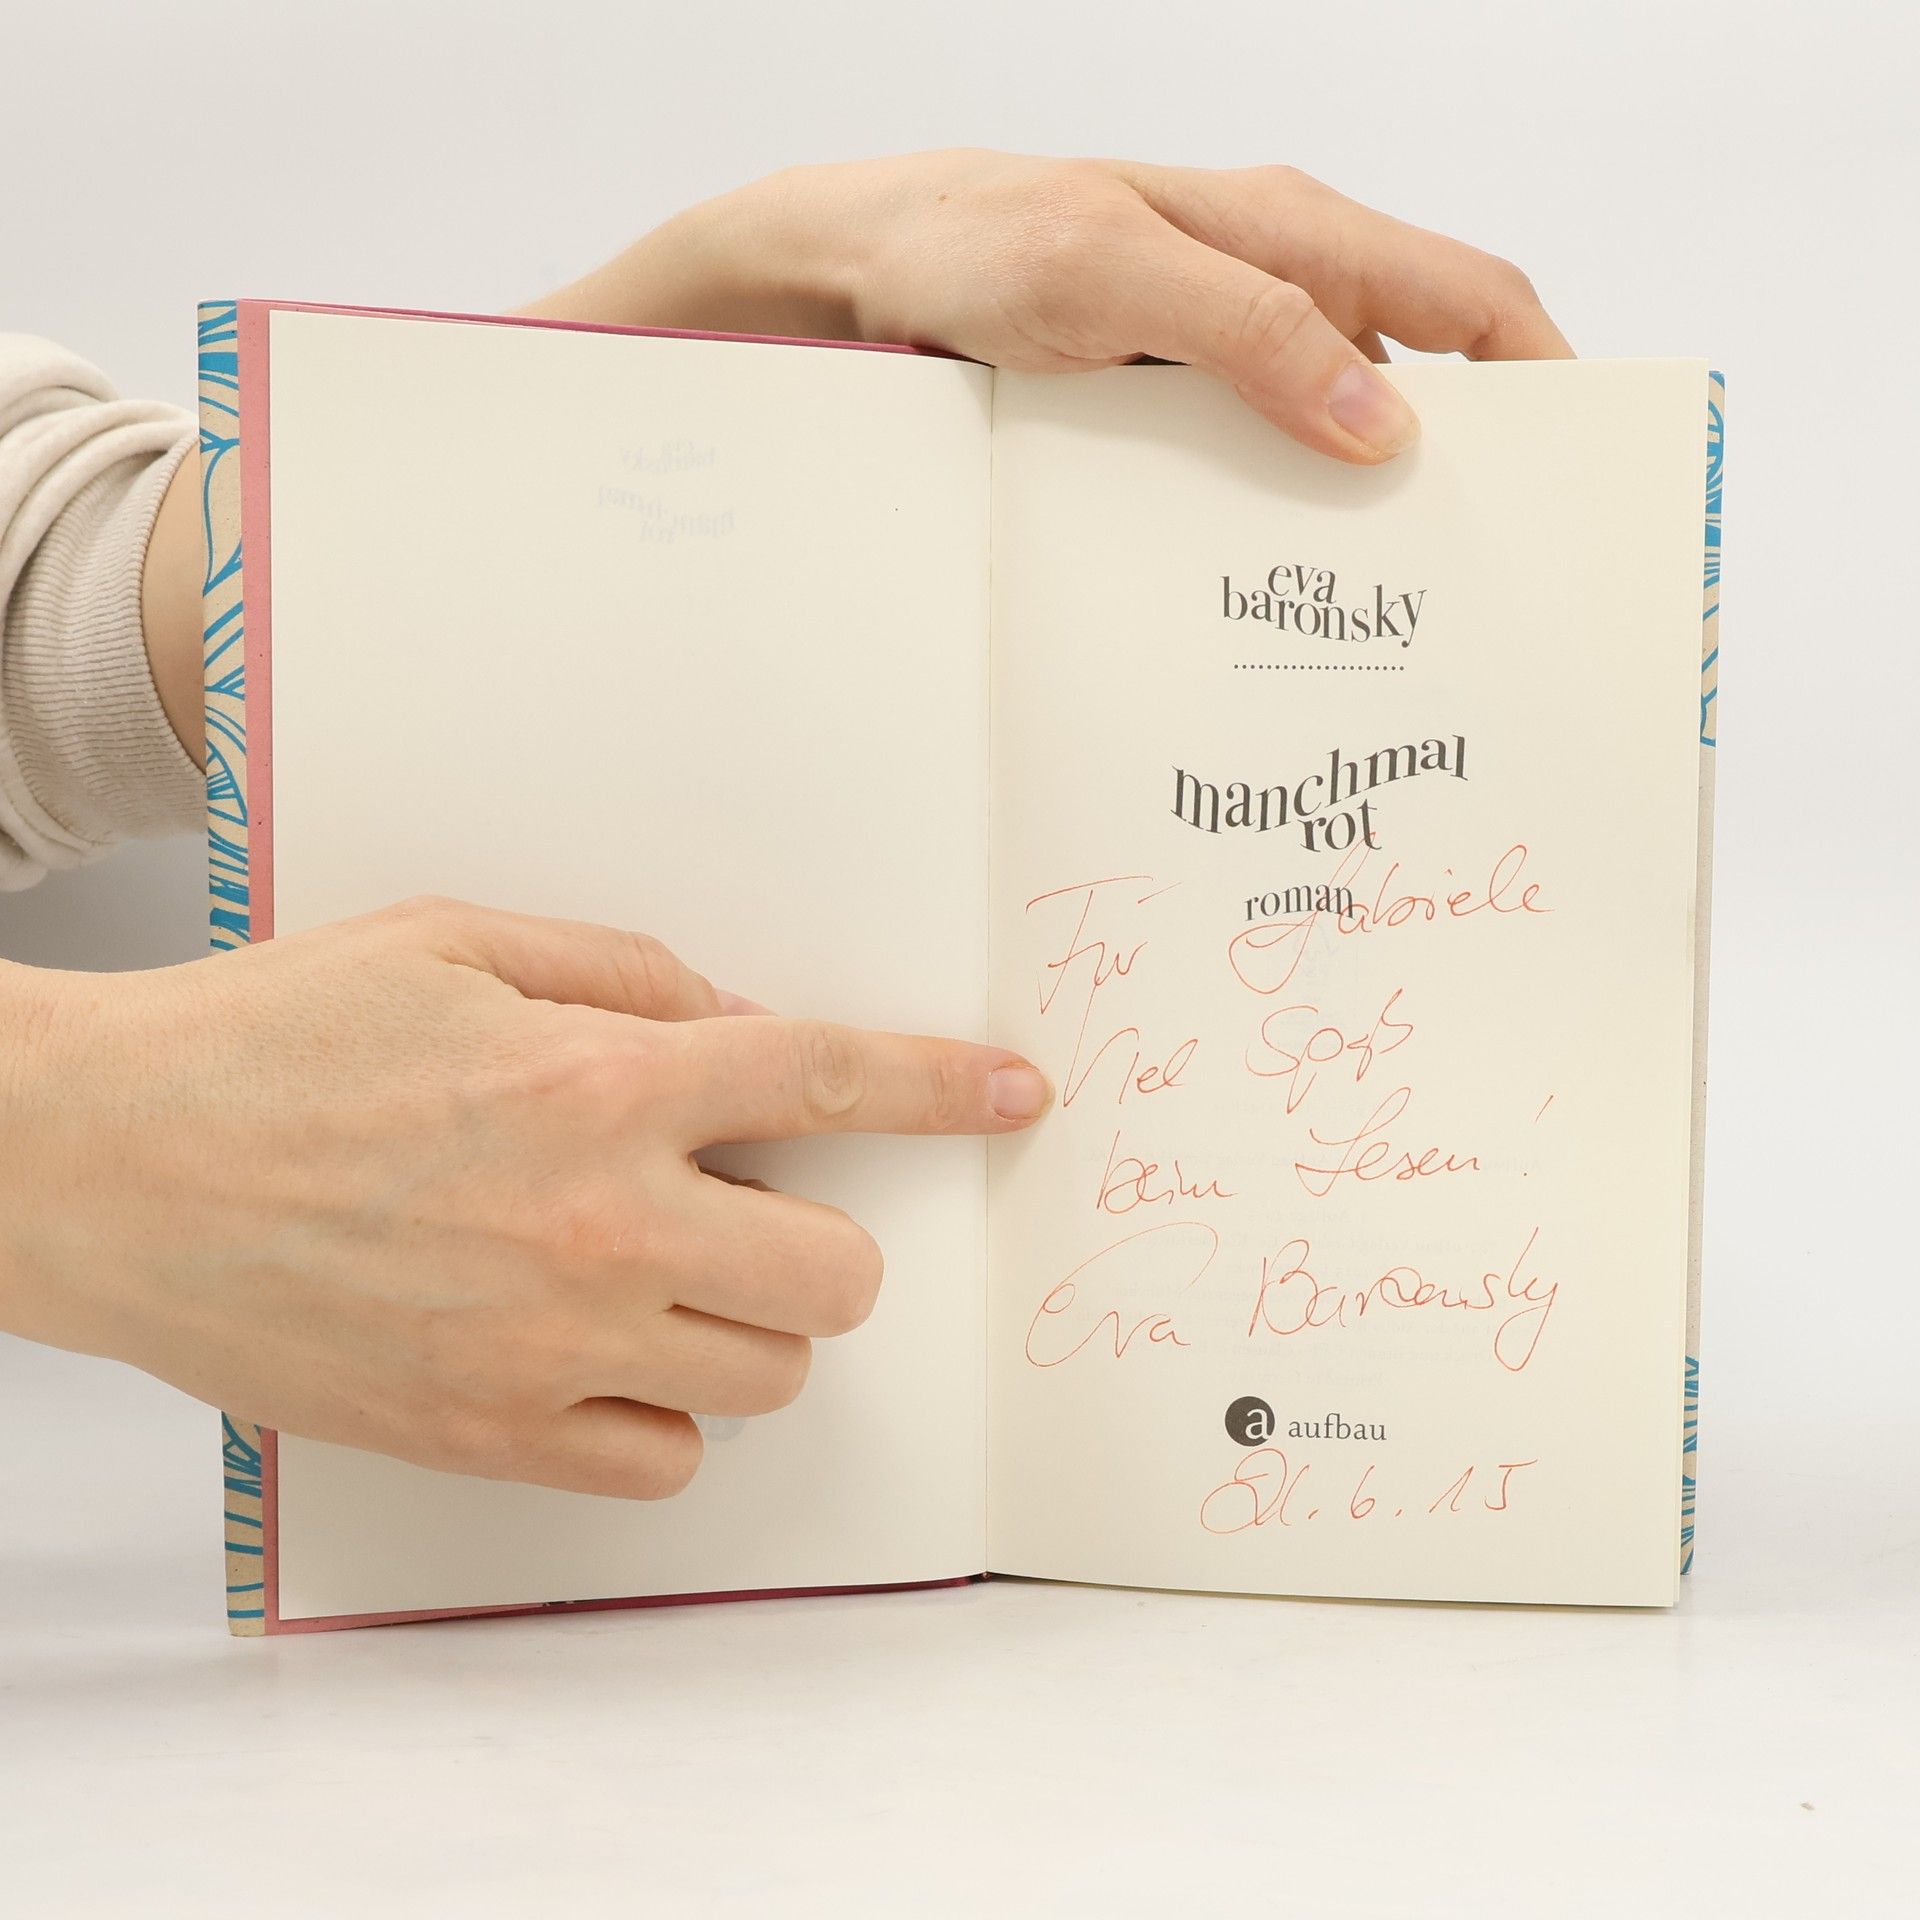 eva
baronsky
manchmal
rot
roman
Für Gabriele
Viel Spaß
beim Lesen!
Eva Baronsky
a aufbau
21.6.15